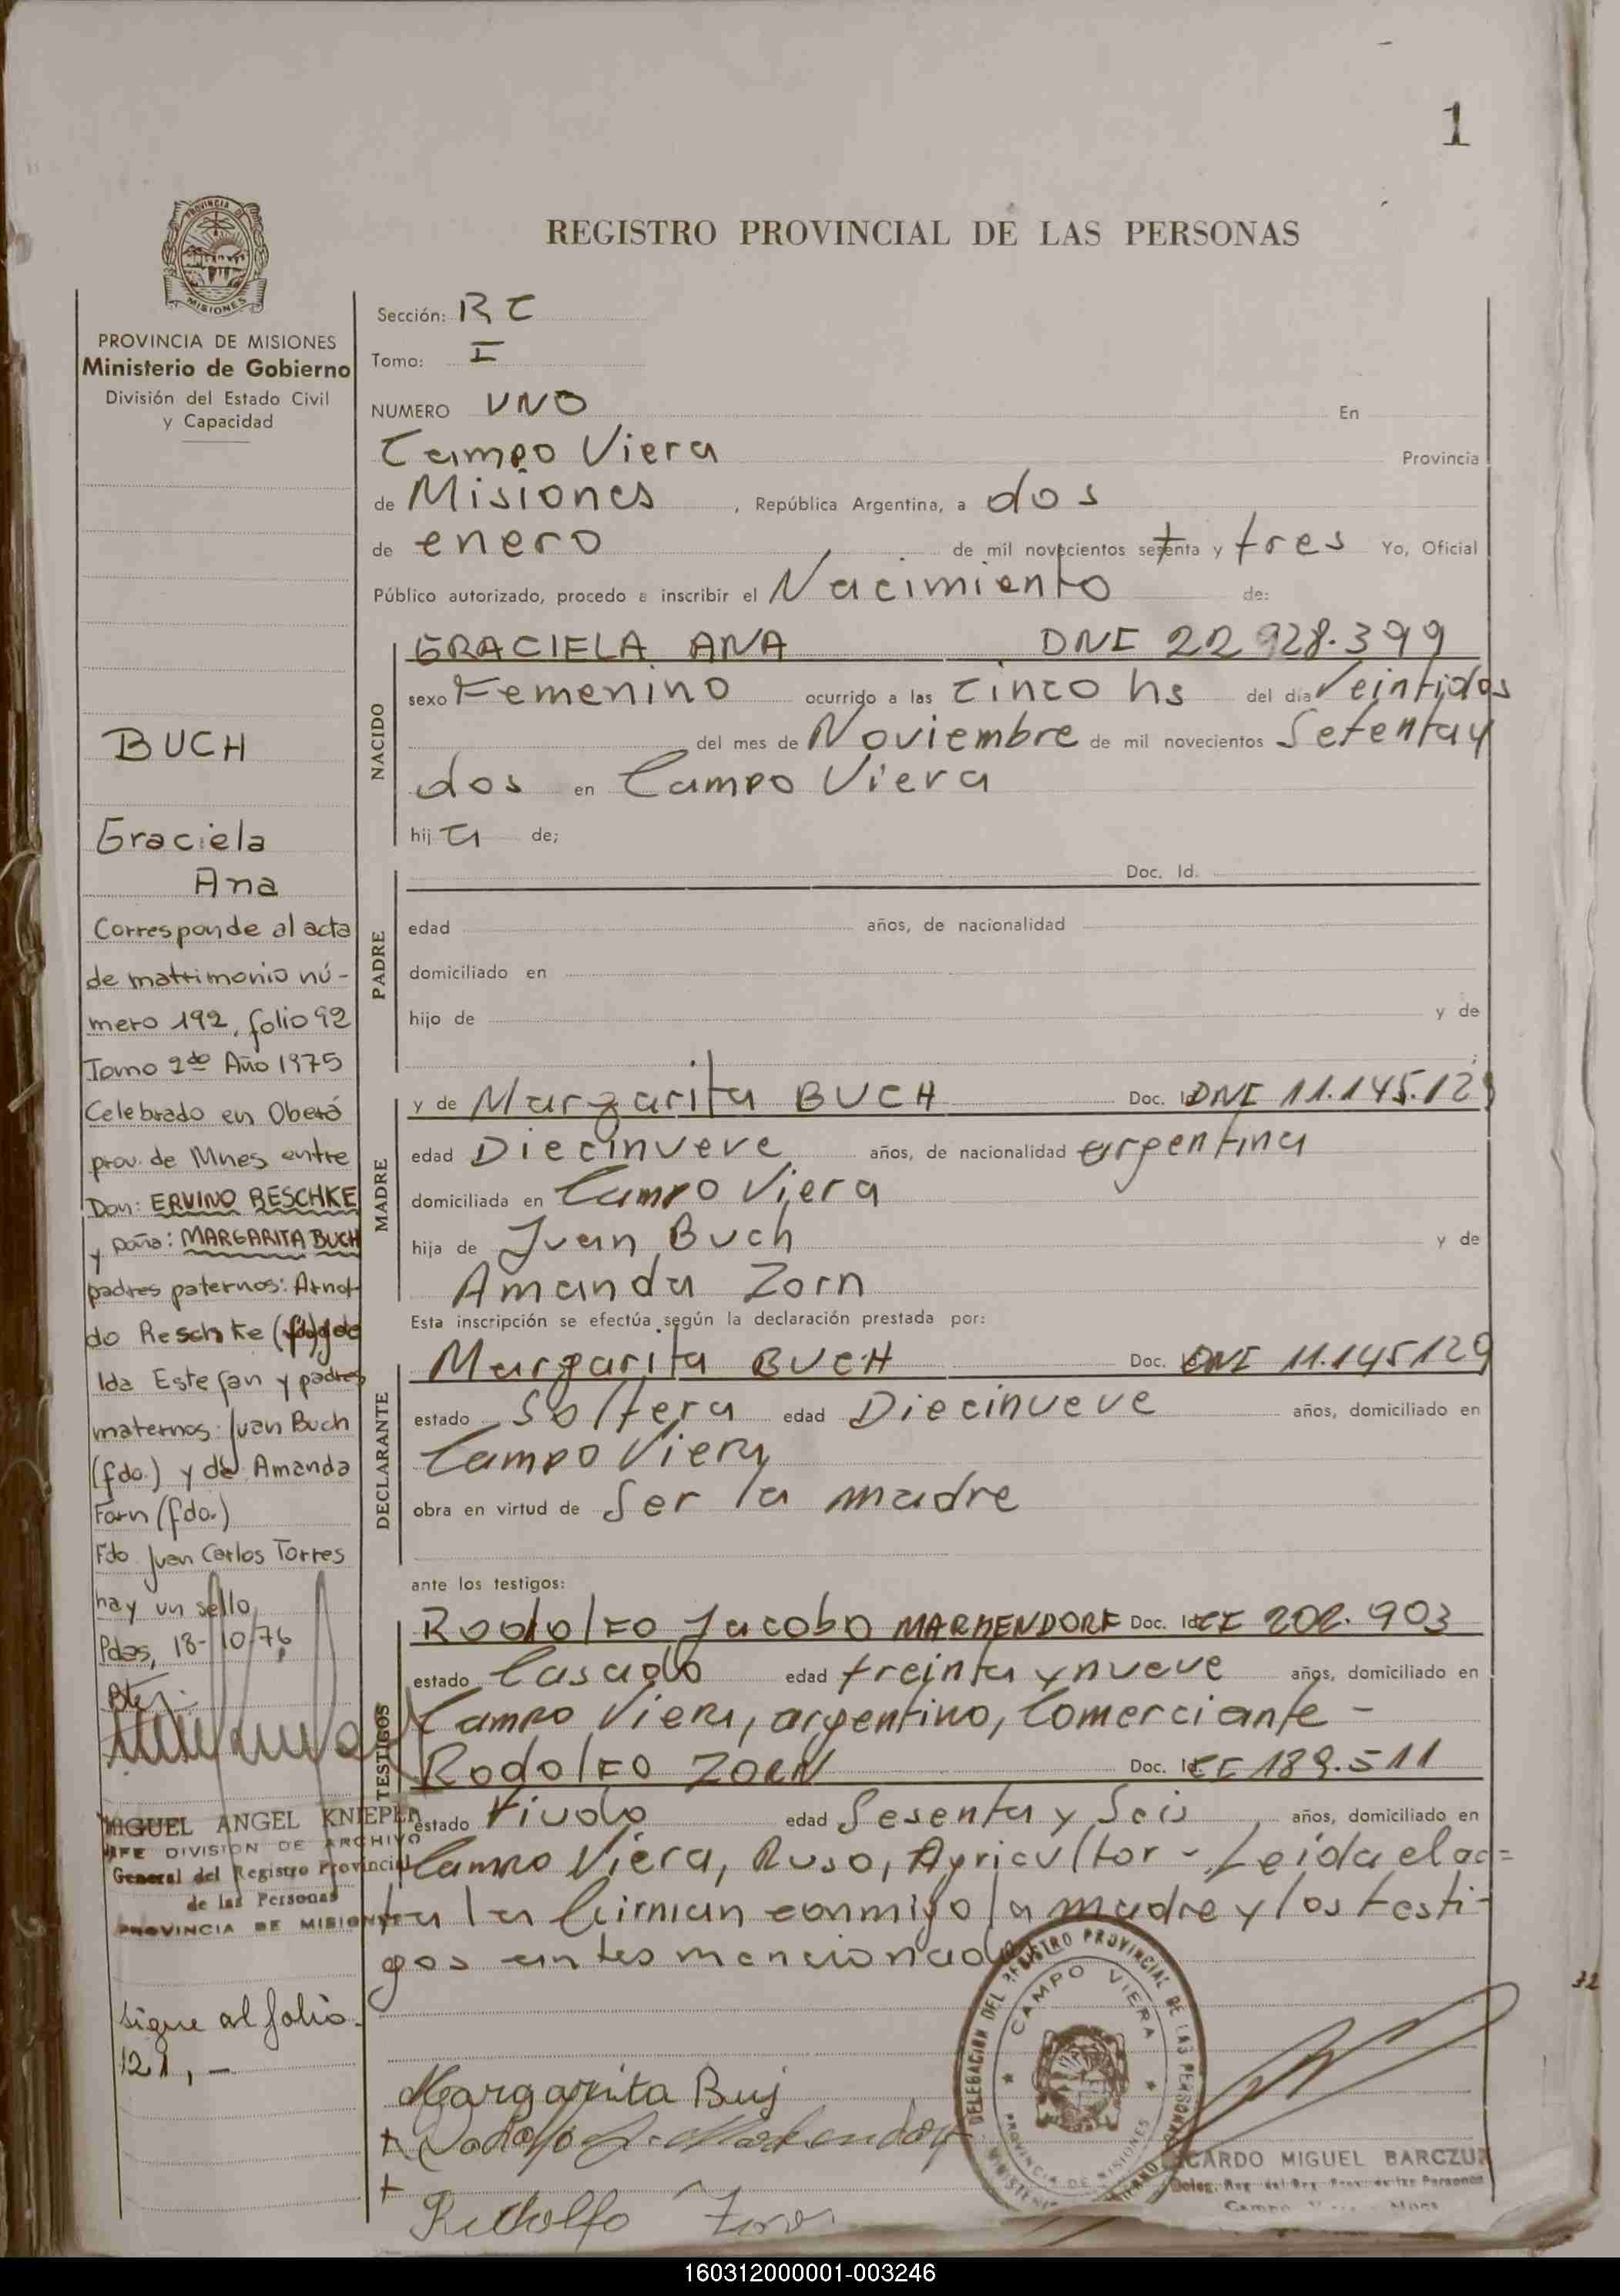 1
REGISTRO PROVINCIAL DE LAS PERSONAS
PROVINCIA DE MISIONES
Ministerio de Gobierno
División del Estado Civil
y Capacidad
BUCH
Graciela
Ana
Corresponde al acta
de matrimonio nú-
mero 192, folio 92
Tomo 2do Año 1975
Celebrado en Oberá
prov. de Mnes entre
Don: ERVINO RESCHKE
y Doña: MARGARITA BUCH
padres paternos: Arnol-
do Reschke (fdo) y de
Ida Estefan y padres
maternos: Juan Buch
(fdo.) y de Amanda
Forn (fdo.)
Fdo. Juan Carlos Torres
hay un sello
Pdas, 18-10-76
MIGUEL ANGEL KNIEPER
JEFE DIVISION DE ARCHIVO
General del Registro Provincial
de las Personas
PROVINCIA DE MISIONES
sigue al folio
121,-
Sección: RC
Tomo: I
NUMERO UNO En
Campo Viera Provincia
de Misiones, República Argentina, a dos
de enero de mil novecientos setenta y tres Yo, Oficial
Público autorizado, procedo a inscribir el Nacimiento de:
NACIDO
GRACIELA ANA DNI 22 928.399
sexo Femenino ocurrido a las cinco hs del día Veintidos
del mes de Noviembre de mil novecientos Setenta y
dos en Campo Viera
hij a de;
PADRE
Doc. Id.
edad años, de nacionalidad
domiciliado en
hijo de y de
;
MADRE
y de Margarita BUCH Doc. Id DNI 11.145.129
edad Diecinueve años, de nacionalidad argentina
domiciliada en Campo Viera
hija de Juan Buch y de
Amanda Zorn
Esta inscripción se efectúa según la declaración prestada por:
DECLARANTE
Margarita BUCH Doc. DNI 11.145129
estado Soltera edad Diecinueve años, domiciliado en
Campo Viera
obra en virtud de Ser la madre
ante los testigos:
TESTIGOS
Rodolfo Jacobo MARKENDORF Doc. Id CI 202.903
estado Casado edad treinta y nueve años, domiciliado en
Campo Viera, argentino, Comerciante -
Rodolfo ZORN Doc. Id CI 189.511
estado Viudo edad Sesenta y Seis años, domiciliado en
Campo Viera, Ruso, Agricultor - Leida el ac=
ta la firman conmigo la madre y los testi-
gos antes mencionados
Margarita Buj
Rodolfo J. Markendorf
Rodolfo Zorn
DELEGACION DEL REGISTRO PROVINCIAL DE LAS PERSONAS
CAMPO VIERA
PROVINCIA DE MISIONES
CARDO MIGUEL BARCZUK
32
160312000001-003246